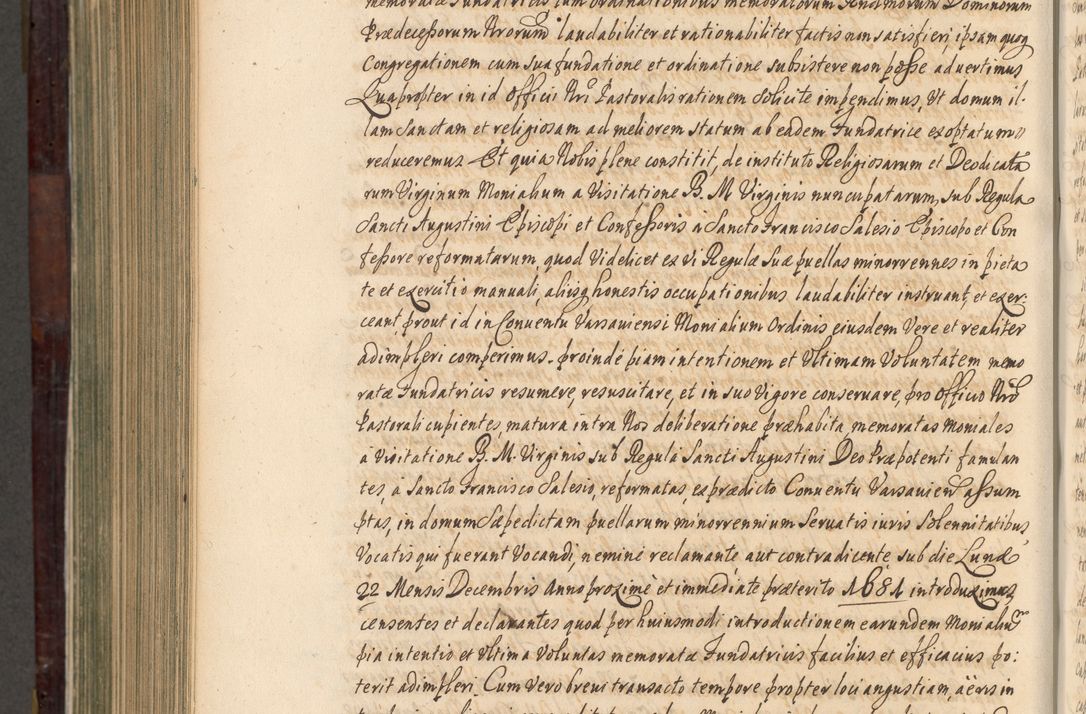 memoratæ Fundatricis tum ordinationibus memoratorum Dominorum
Prædecessorum Nrorum laudabiliter et rationabiliter factis non satisfieri, ipsam quoq
Congregationem cum sua fundatione et ordinatione subsistere non posse aduertimus
Quapropter in id Officii Nri Pastoralis rationem solicite impendimus, Ut domum il-
lam Sanctam et religiosam ad meliorem statum ab eadem Fundatrice exoptatum
reduceremus Et quia Nobis plene constitit, de instituto Religiosarum et Deodicata
rum Virginum Monialium a Visitatione B. M Virginis nuncupatarum, sub Regula
Sancti Augustini Episcopi et Confessoris à Sancto Francisco Salesio Episcopo et Con
fessore reformatarum, quod Videlicet ex vi Regulæ Suæ puellas minorrennes in pieta
te et exercitio manuali, aliisq honestis occupationibus laudabiliter instruant, et exer-
ceant, prout id in Conuentu Varsauiensi Monialium Ordinis eiusdem Vere et realiter
adimpleri comperimus. proindé piam intentionem et Ultimam Voluntatem memo
ratæ Fundatricis resumere, resuscitare, et in suo Vigore conseruare, pro Officio Nro
Pastorali cupientes, matura intra Nos deliberatione præhabita, memoratas Moniales
a Visitatione B. M. Virginis sub Regula Sancti Augustini Deo Præpotenti famulan
tes, á Sancto Francisco Salesio, reformatas ex prædicto Conuentu Varsauien assum
ptas, in domum Sæpedictam puellarum minorrennium Seruatis iuris Solennitatibus,
Vocatis qui fuerant Vocandi, nemine reclamante aut contradicente, sub die Lunæ
22 Mensis Decembris Anno proxime et immediate præterito 1681 introduximus,
censentes et declarantes quod per huiusmodi introductionem earundem Monialium
pia intentio et Ultima Voluntas memoratæ Fundatricis facilius et efficacius po:
terit adimpleri. Cum Vero breui transacto tempore propter loci angustiam, aëris in